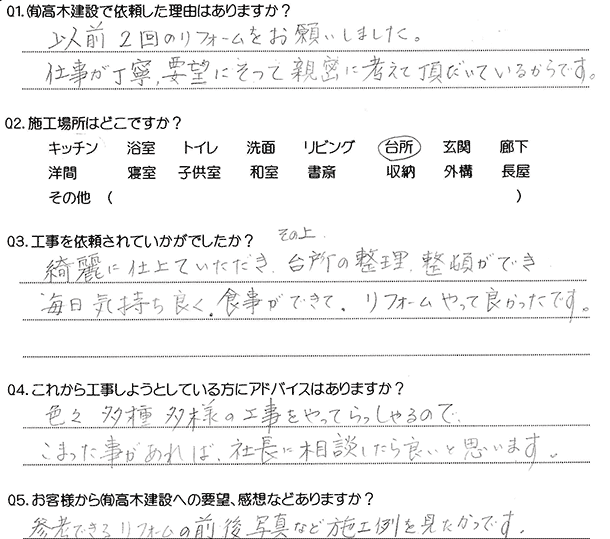 Q1.㈲高木建設で依頼した理由はありますか？
以前2回のリフォームをお願いしました。
仕事が丁寧,要望にそって親密に考えて頂だいているからです。
Q2.施工場所はどこですか？
キッチン 浴室 トイレ 洗面 リビング 台所 玄関 廊下
洋間 寝室 子供室 和室 書斎 収納 外構 長屋
その他 ( )
Q3.工事を依頼されていかがでしたか？
その上
綺麗に仕上ていただき、台所の整理、整頓ができ
毎日気持ち良く、食事ができて、リフォームやって良かったです。
Q4.これから工事しようとしている方にアドバイスはありますか？
色々多種多様の工事をやってらっしゃるので、
こまった事があれば、社長に相談したら良いと思います。
Q5.お客様から㈲高木建設への要望、感想などありますか？
参考できるリフォームの前後写真など施工例を見たかったです.